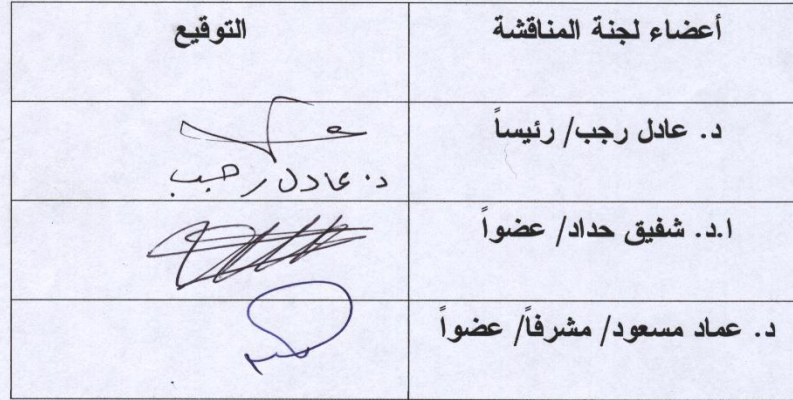 أعضاء لجنة المناقشة
التوقيع
د. عادل رجب/ رئيساً
د. عادل رجب
ا.د. شفيق حداد/ عضواً
د. عماد مسعود/ مشرفاً/ عضواً